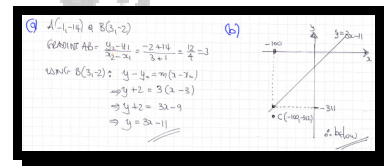 (a) A(-1,-14) & B(3,-2)
GRADIENT AB = (y₂-y₁)/(x₂-x₁) = (-2+14)/(3+1) = 12/4 = 3
USING B(3,-2): y - y₀ = m(x - x₀)
⇒ y + 2 = 3(x - 3)
⇒ y + 2 = 3x - 9
⇒ y = 3x - 11
(b)
y
y=3x-11
-100
x
-311
C(-100,-312)
∴ below